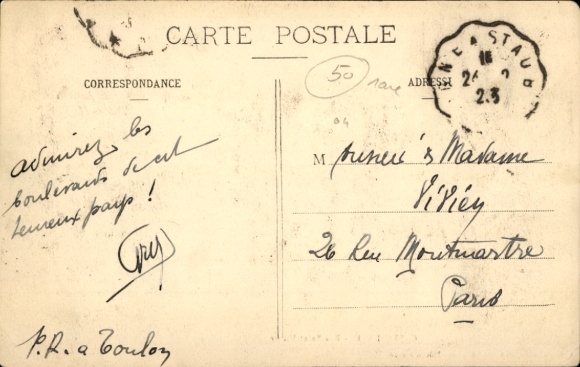 CARTE POSTALE
CORRESPONDANCE
ADRESSE
50
rare
64
NE A STAUB
16
24 2
23
admirez les
boulevards de cet
heureux pays !
P.R. a Toulon
M onsieur & Madame
Vivien
26 Rue Montmartre
Paris